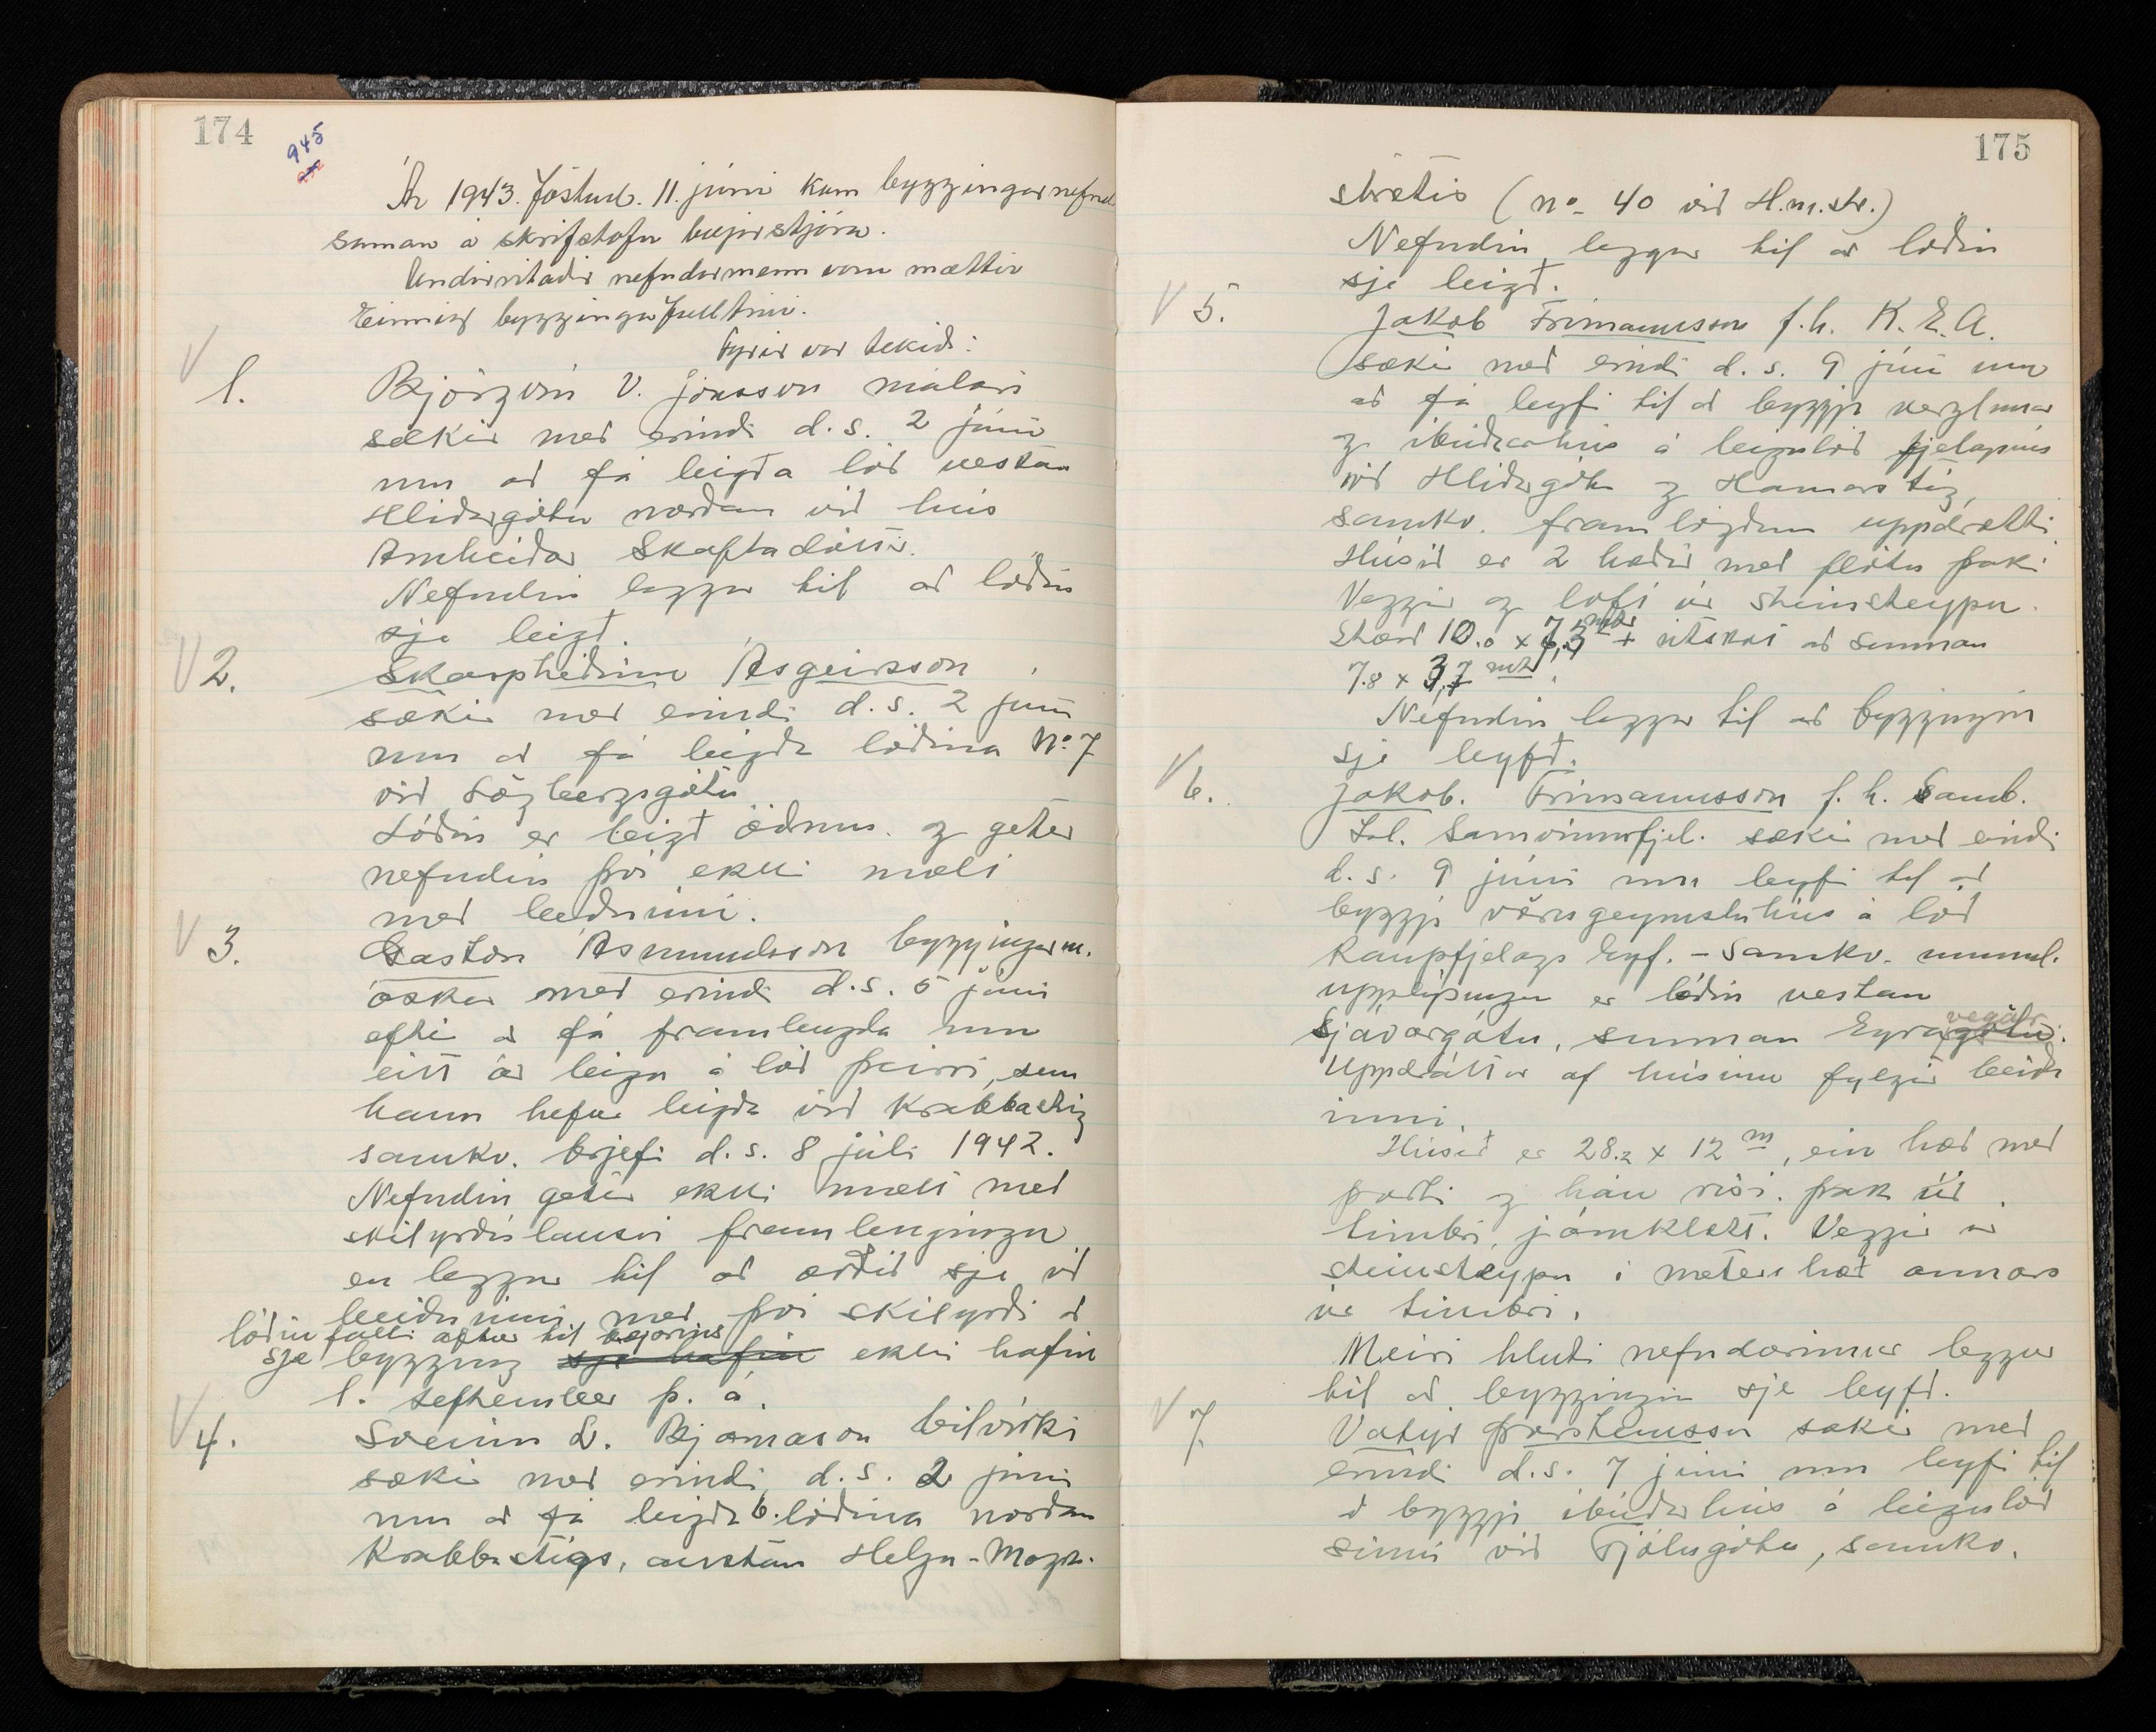 174
945
Ár 1943. föstud. 11. júni kom bygginganefnd
saman á skrifstofu bæjarstjóra.
Undirritaðir nefndarmenn voru mættir
Einnig byggingafulltrúi.
Fyrir var tekið:
V 1. Björgvin V. Jónsson málari
sækir með erindi d.s. 2 júni
um að fá leigða lóð vestan
Hlíðargötu norðan við hús
Arnheiðar Skaftadóttir.
Nefndin leggur til að lóðin
sje leigð.
V 2. Skarphéðinn Ásgeirsson
sækir með erindi d.s. 2 júni
um að fá leigða lóðina No 7
við Lögbergsgötu
Lóðin er leigð öðrum og getur
nefndin því ekki mælt
með beiðninni.
V 3. Gaston Ásmundsson byggingam.
óskar með erindi d.s. 5 júni
eftir að fá framlengda um
eitt ár leigu á lóð þeirri, sem
hann hefur leigða við Krabbastíg
samkv. brjefi d.s. 8 júli 1942.
Nefndin getur ekki mælt með
skilyrðislausri framlengingu
en leggur til að orðið sje við
beiðninni með því skilyrði að
lóðin falli aftur til bæjarins
sje bygging sje hafin ekki hafin
1. september þ. á.
V 4. Sveinn L. Bjarnason bílvirki
sækir með erindi d.s. 2 júni
um að fá leigða b. lóðina norðan
Krabbastígs, austan Helga-Magra-
175
strætis (no. 40 við H.m.str.)
Nefndin leggur til að lóðin
sje leigð.
V 5. Jakob Frímannsson f.h. K.E.A.
sækir með erindi d.s. 9 júni um
að fá leyfi til að byggja verzlunar
og íbúðarhús á leigulóð fjelagsins
við Hlíðargötu og Hamarstíg,
samkv. framlögðum uppdrætti
Húsið er 2 hæðir með flötu þaki
Veggir og loft úr steinsteypu.
Stærð 10.0 x 7,3 mtr + útskot að sunnan
7.8 x 3,7 mtr.
Nefndin leggur til að byggingin
sje leyfð.
V 6. Jakob. Frímannsson f.h. Samb.
Ísl. Samvinnufjel. sækir með erindi
d.s. 9 júni um leyfi til að
byggja vörugeymsluhús á lóð
Kaupfjelags Eyf. - samkv. munnl.
upplýsingu er lóðin vestan
Sjávargötu, sunnan Eyrargötu. vegar
Uppdráttur af húsinu fylgir beiðn
inni.
Húsið er 28.2 x 12 m, ein hæð með
porti og háu risi. þak úr
timbri, járnklætt. Veggir úr
steinsteypu í meters hæð annars
úr timbri.
Meiri hluti nefndarinnar leggur
til að byggingin sje leyfð.
V 7. Valtýr Þorsteinsson sækir með
erindi d.s. 7 júni um leyfi til
að byggja íbúðarhús á leigulóð
sinni við Fjólugötu, samkv.